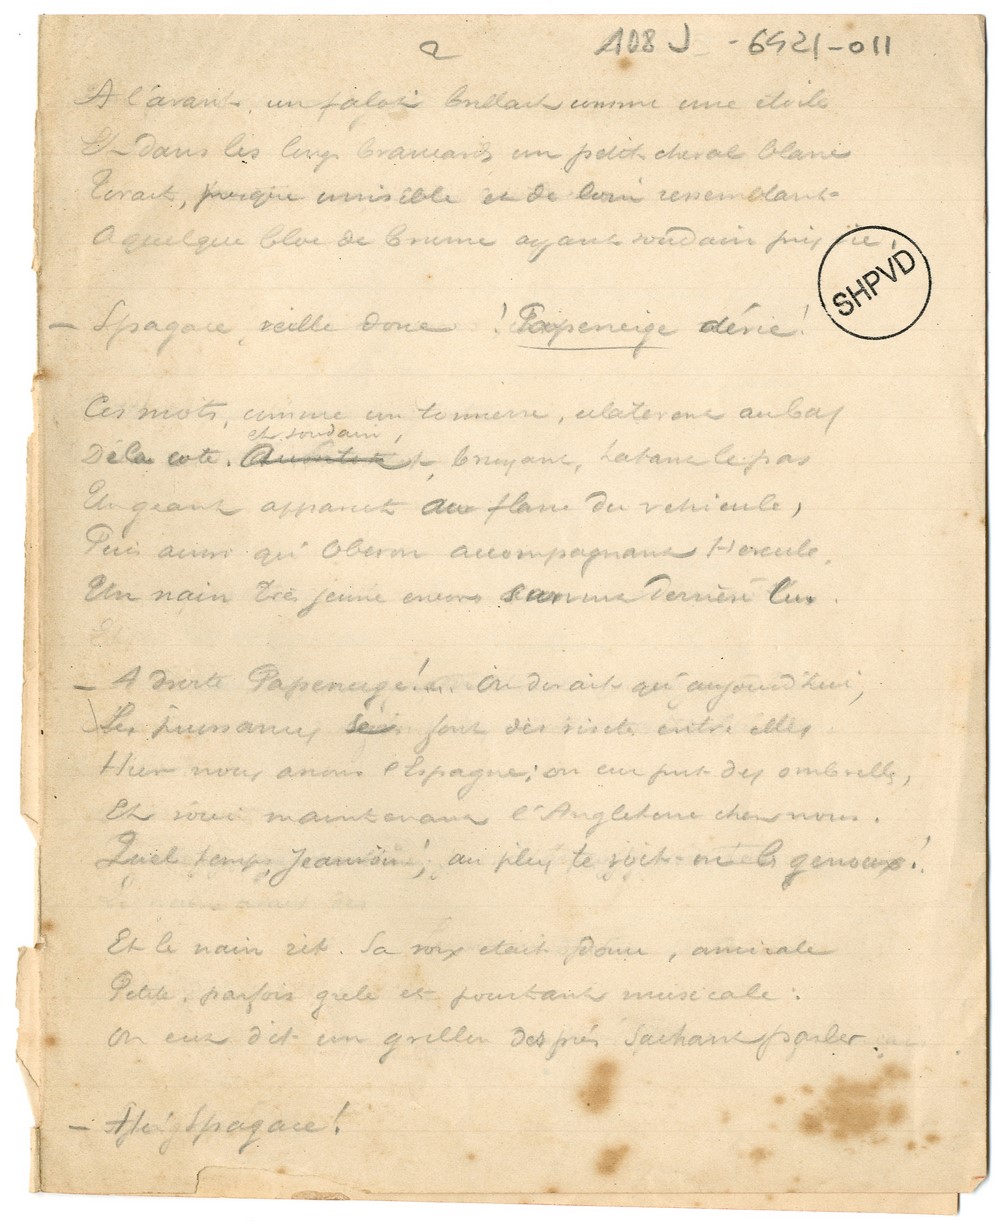 2 108 J - 6421-011
A l'avant, un falot brillait comme une étoile
Et dans les longs brancards un petit cheval blanc
Tirait, presque invisible et de loin ressemblant
A quelque bloc de brume ayant soudain pris vie,
SHPVD
— Spagace, veille donc ! Papeneige dévie !
Ces mots, comme un tonnerre, éclatèrent au bas
et soudain,
De la cote. Aussitôt bruyant, hatant le pas
Un géant apparut au flanc du véhicule,
Puis ainsi qu'Oberon accompagnant Hercule,
Un nain très jeune encore derrière lui.
Et
— A droite Papeneige !... On dirait qu'aujourd'hui,
Les Puissances se font des visites entre elles
Hier nous avions l'Espagne ; on eut put des ombrelles,
Et voici maintenant l'Angleterre chez nous.
Quel temps, Jeanvoine !, au plus te voit-on les genoux !
Et le nain rit. Sa voix était douce, amicale
Petite, parfois grele et pourtant musicale :
On eut dit un grillon des prés sachant parler
— Spagace !